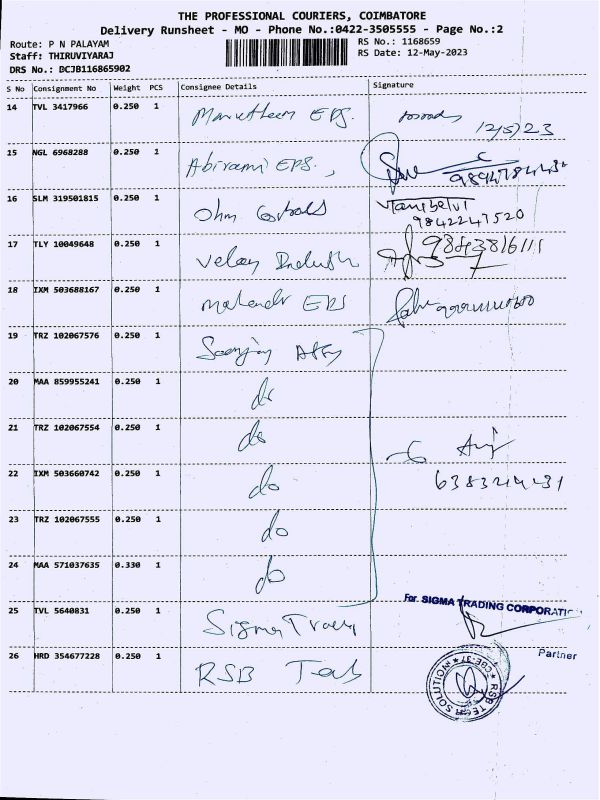 THE PROFESSIONAL COURIERS, COIMBATORE
Delivery Runsheet - MO - Phone No.:0422-3505555 - Page No.:2
Route: P N PALAYAM RS No.: 1168659
Staff: THIRUVIYARAJ RS Date: 12-May-2023
DRS No.: BCJB116865902
S No Consignment No Weight PCS Consignee Details Signature
14 TVL 3417966 0.250 1 EPS. 12/5/23
15 NGL 6968288 0.250 1 Abirami EPS.,
16 SLM 319501815 0.250 1 Ohm Controls 9842247520
17 TLY 10049648 0.250 1 9843816111
18 IXM 503688167 0.250 1 EPS
19 TRZ 102067576 0.250 1
20 MAA 859955241 0.250 1 do
21 TRZ 102067554 0.250 1 do
22 IXM 503660742 0.250 1 do
23 TRZ 102067555 0.250 1 do
24 MAA 571037635 0.330 1 do
25 TVL 5640831 0.250 1 Sigma For SIGMA TRADING CORPORATION
Partner
26 HRD 354677228 0.250 1 RSB RSB TECH SOLUTION CBE-37